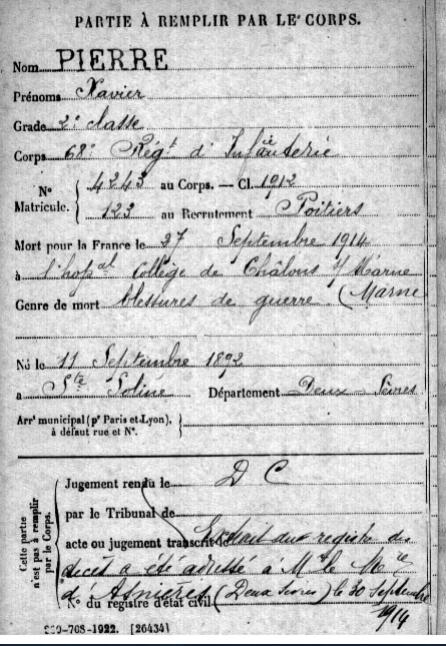 PARTIE À REMPLIR PAR LE CORPS.
Nom PIERRE
Prénoms Xavier
Grade 2e classe
Corps 68e Régt d'Infanterie
No Matricule. { 4243 au Corps. — Cl. 1912
123 au Recrutement Poitiers
Mort pour la France le 27 Septembre 1914
à l'hopal Collège de Châlons s/ Marne
Genre de mort blessures de guerre (Marne
Né le 11 Septembre 1892
à Ste Soline Département Deux Sèvres
Arrt municipal (pr Paris et Lyon), à défaut rue et No. }
Cette partie n'est pas à remplir par le Corps.
Jugement rendu le D C
par le Tribunal de
acte ou jugement transcrit le Extrait du registre des
décès a été adressé à Mr le Mre
d'Asnières (Deux Sèvres) le 30 Septembre
No du registre d'état civil 1914
-708-1922. [26434]